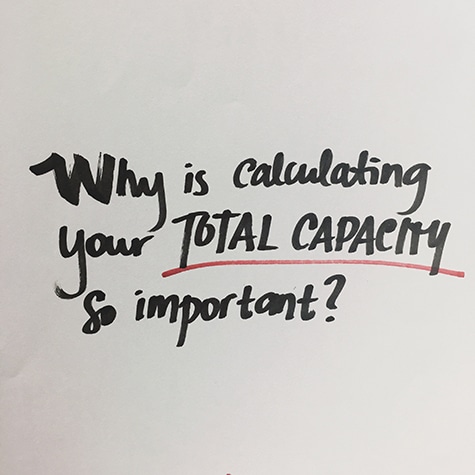 Why is calculating
your TOTAL CAPACITY
so important?